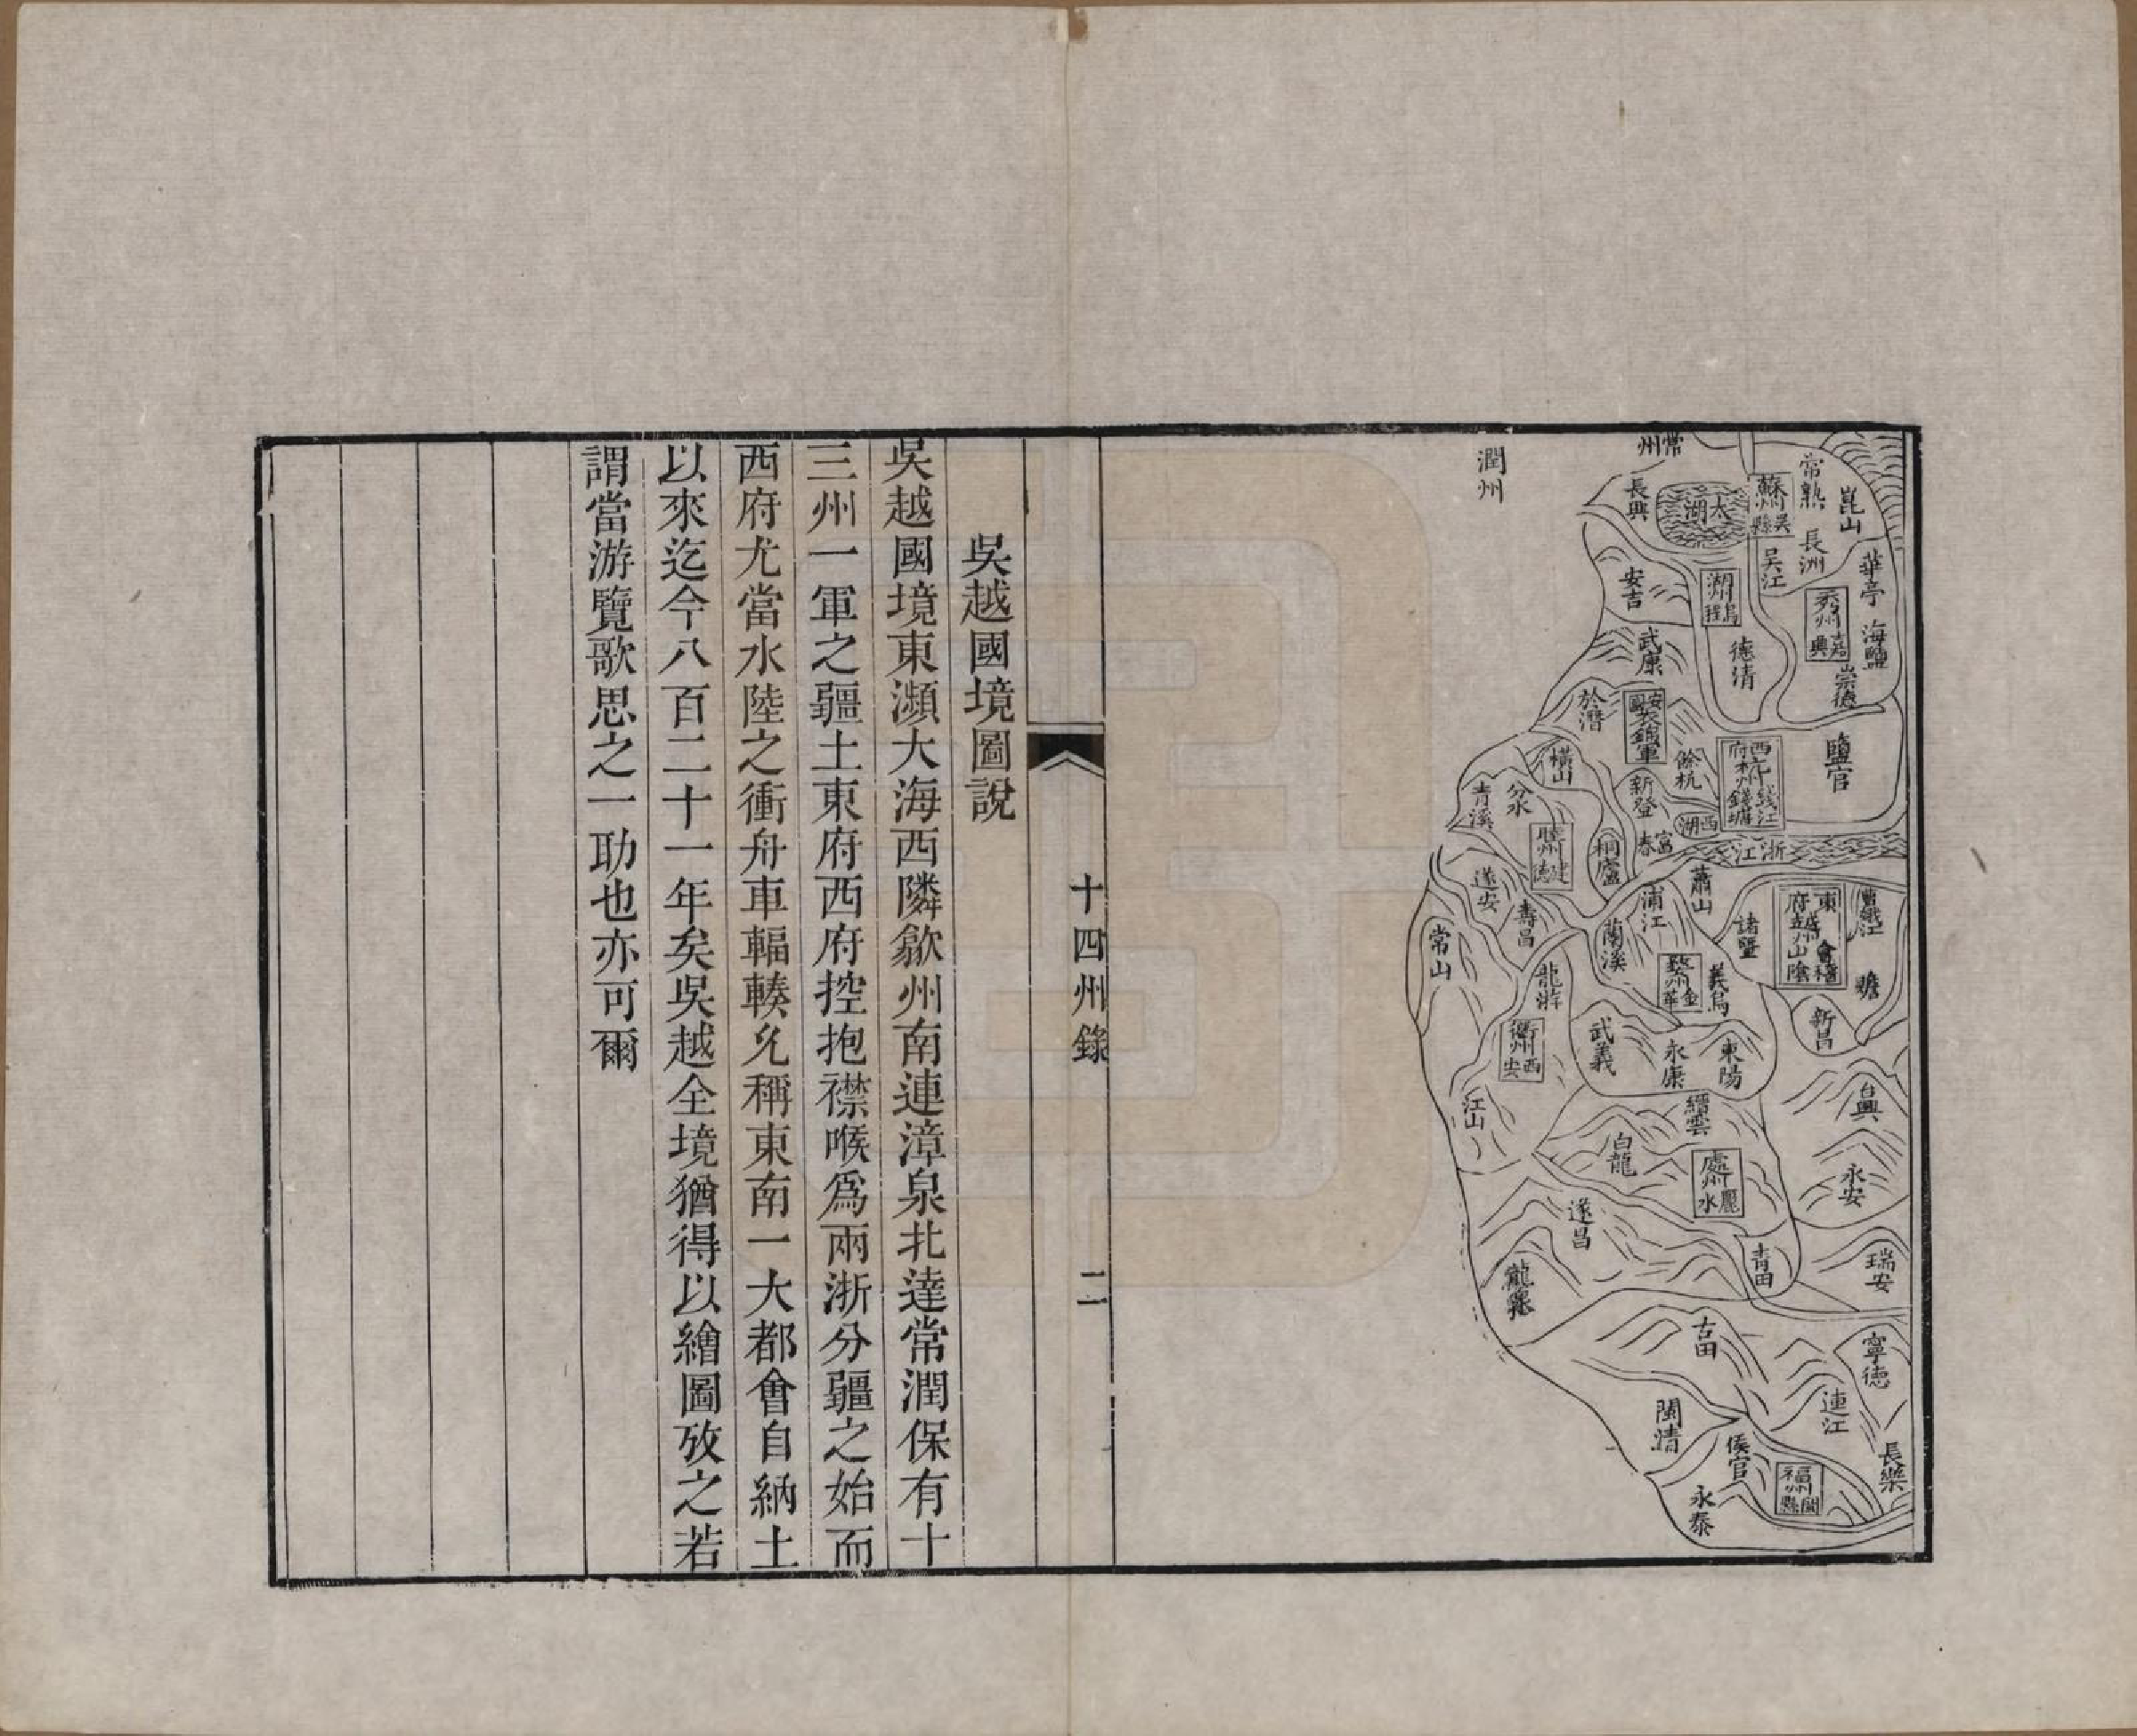 常州
潤州
崑山
常熟
蘇州
吳縣
太湖
長興
華亭
長洲
吳江
湖州
烏程
安吉
海鹽
秀州
嘉興
崇德
德清
武康
安國
衣錦軍
於潛
鹽官
西府
杭州
錢江
錢塘
餘杭
新登
西湖
橫山
分水
青溪
睦州
建德
桐廬
富春
浙江
曹娥江
東府
越州
會稽
山陰
蕭山
諸暨
浦江
蘭溪
遂安
壽昌
常山
新昌
義烏
婺州
金華
龍游
衢州
西安
武義
永康
東陽
江山
縉雲
白龍
處州
麗水
永安
遂昌
青田
瑞安
古田
寧德
連江
閩清
侯官
長樂
福州
閩縣
永泰
十四州錄
二
吳越國境圖說
吳越國境東瀕大海西隣歙州南連漳泉北達常潤保有十
三州一軍之疆土東府西府控抱襟喉爲兩浙分疆之始而
西府尤當水陸之衝舟車輻輳允稱東南一大都會自納土
以來迄今八百二十一年矣吳越全境猶得以繪圖攷之若
謂當游覽歌思之一助也亦可爾